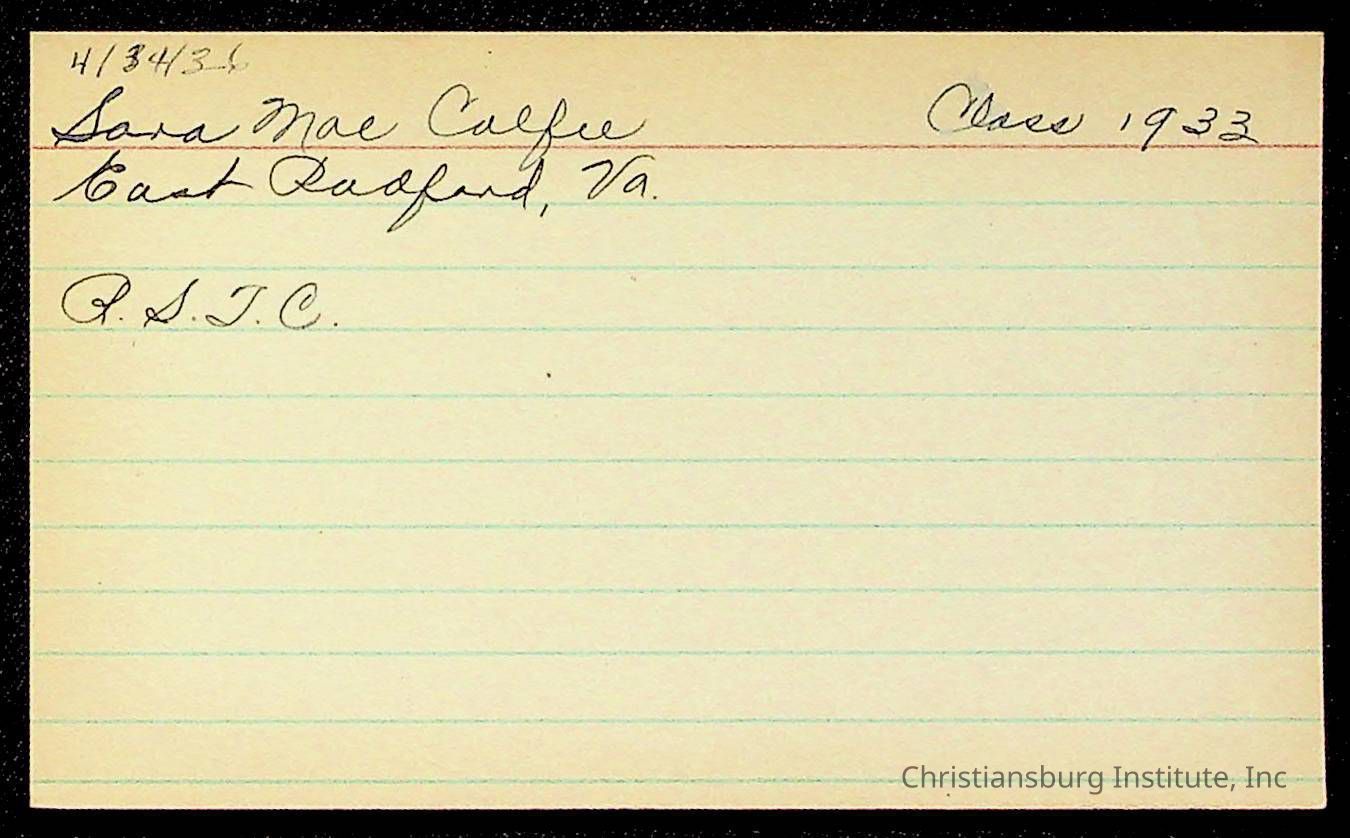 Sara Mae Calfee Class 1933
East Radford, Va.
R. S. T. C.
Christiansburg Institute, Inc